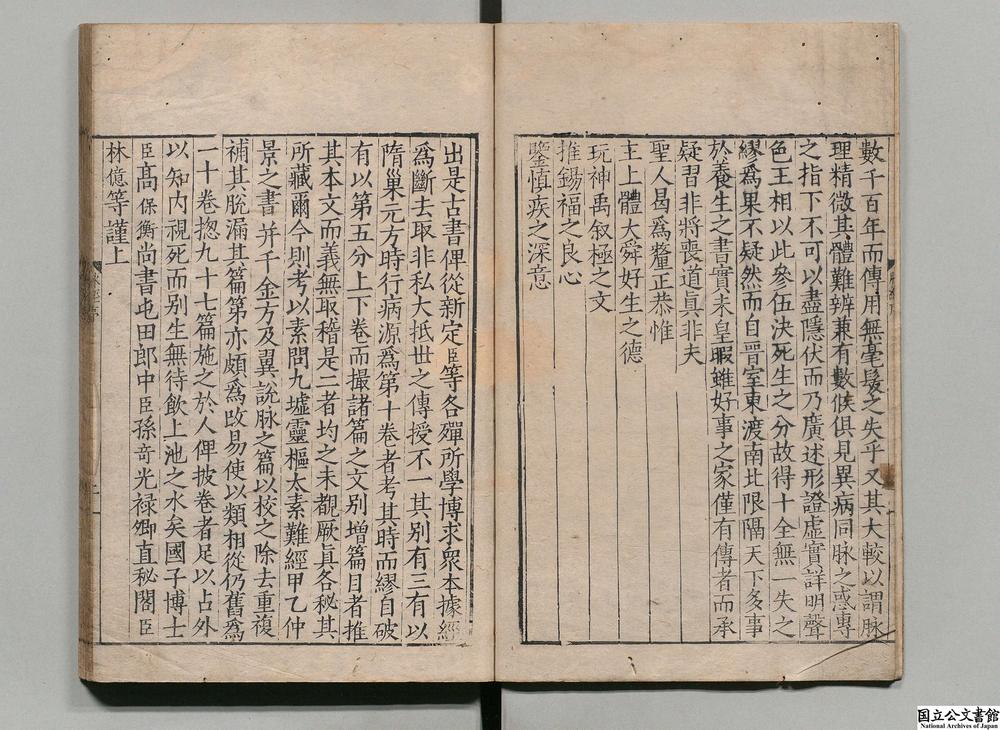 數千百年而傳用無毫髮之失乎又其大較以謂脉
理精微其體難辨兼有數候俱見異病同脉之惑專
之指下不可以盡隱伏而乃廣述形證虛實詳明聲
色王相以此參伍決死生之分故得十全無一失之
繆爲果不疑然而自晉室東渡南北限隔天下多事
於養生之書實未皇暇雖好事之家僅有傳者而承
疑習非將喪道眞非夫
聖人曷爲釐正恭惟
主上體大舜好生之德
玩神禹叙極之文
推錫福之良心
鑒愼疾之深意
出是古書俾從新定臣等各殫所學博求衆本據經
爲斷去取非私大抵世之傳授不一其別有三有以
隋巢元方時行病源爲第十卷者考其時而繆自破
有以第五分上下卷而撮諸篇之文别增篇目者推
其本文而義無取稽是二者均之未覩厥眞各秘其
所藏爾今則考以素問九墟靈樞太素難經甲乙仲
景之書并千金方及翼說脉之篇以校之除去重複
補其脫漏其篇第亦頗爲改易使以類相從仍舊爲
一十卷揔九十七篇施之於人俾披卷者足以占外
以知内視死而别生無待飲上池之水矣國子博士
臣高保衡尚書屯田郎中臣孫奇光禄卿直秘閣臣
林億等謹上
国立公文書館
National Archives of Japan